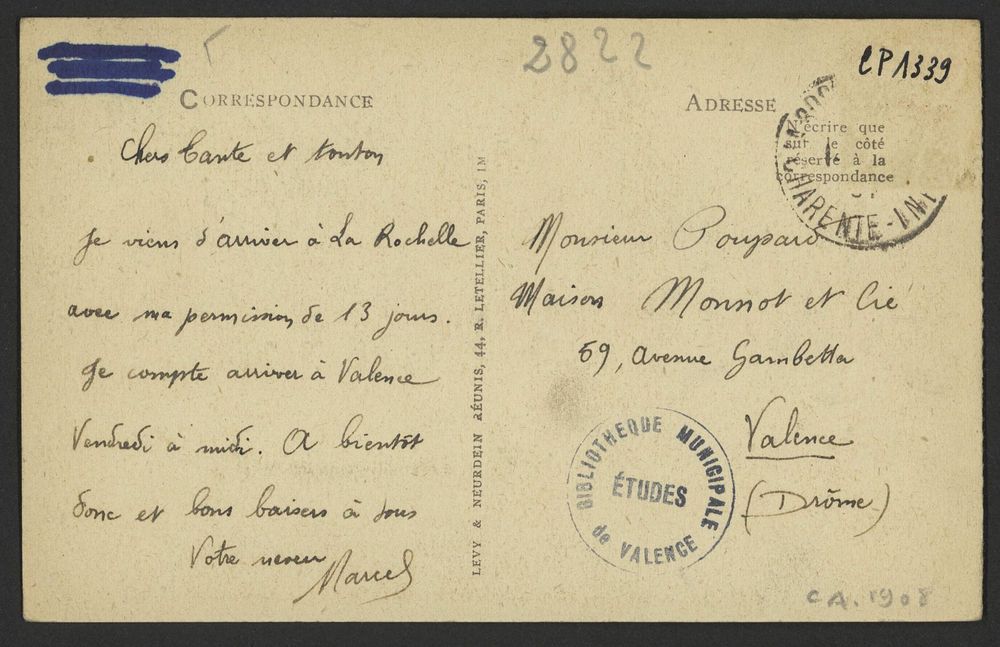 2822
CP1339
CORRESPONDANCE
Chers tante et tonton
Je viens d'arriver à La Rochelle
avec ma permission de 13 jours.
Je compte arriver à Valence
Vendredi à midi. A bientôt
donc et bons baisers à tous
Votre neveu
Marcel
LEVY & NEURDEIN RÉUNIS, 44, R. LETELLIER, PARIS, IM
ADRESSE
N'écrire que
sur le côté
réservé à la
correspondance
CHARENTE-INF
Monsieur Poupard
Maison Monnot et Cie
59, Avenue Gambetta
Valence
(Drôme)
BIBLIOTHEQUE MUNICIPALE
ÉTUDES
de VALENCE
CA. 1908